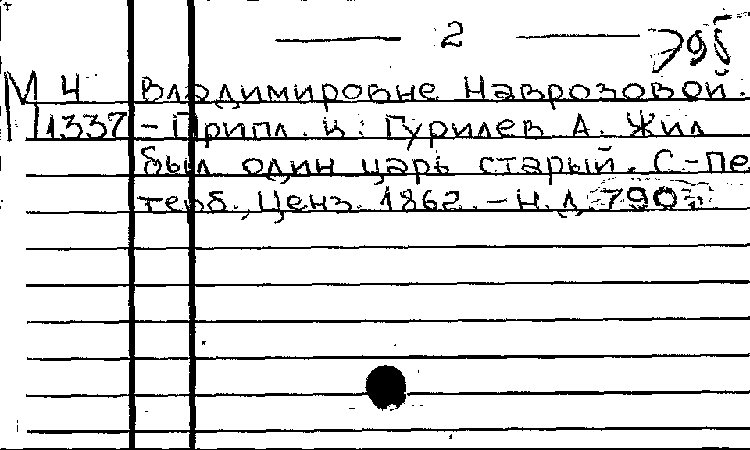 — 2 —
М 4 Владимировне Наврозовой.
1337 – Припл. к: Гурилев А. Жил
был один царь старый. С-Пе
терб., Ценз. 1862. – Н.д. 790